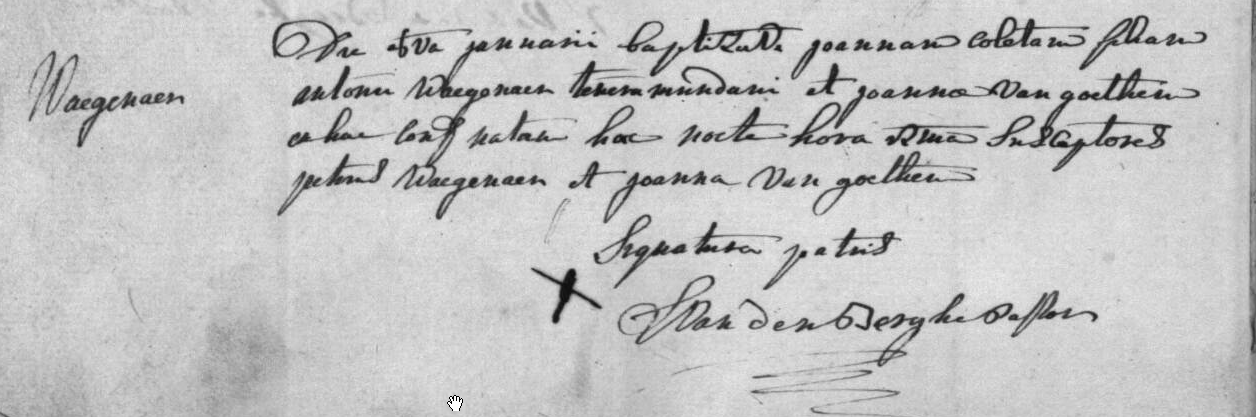 Waegenaer
Die januarii baptizavi joannam coletam filiam
antonii Waegenaer teneramundani et joannæ Van goethem
ex hac natam hac nocte hora Susceptores
petrus Waegenaer et joanna Van goethem
Signatura patris
X
Van den Berghe Pastor